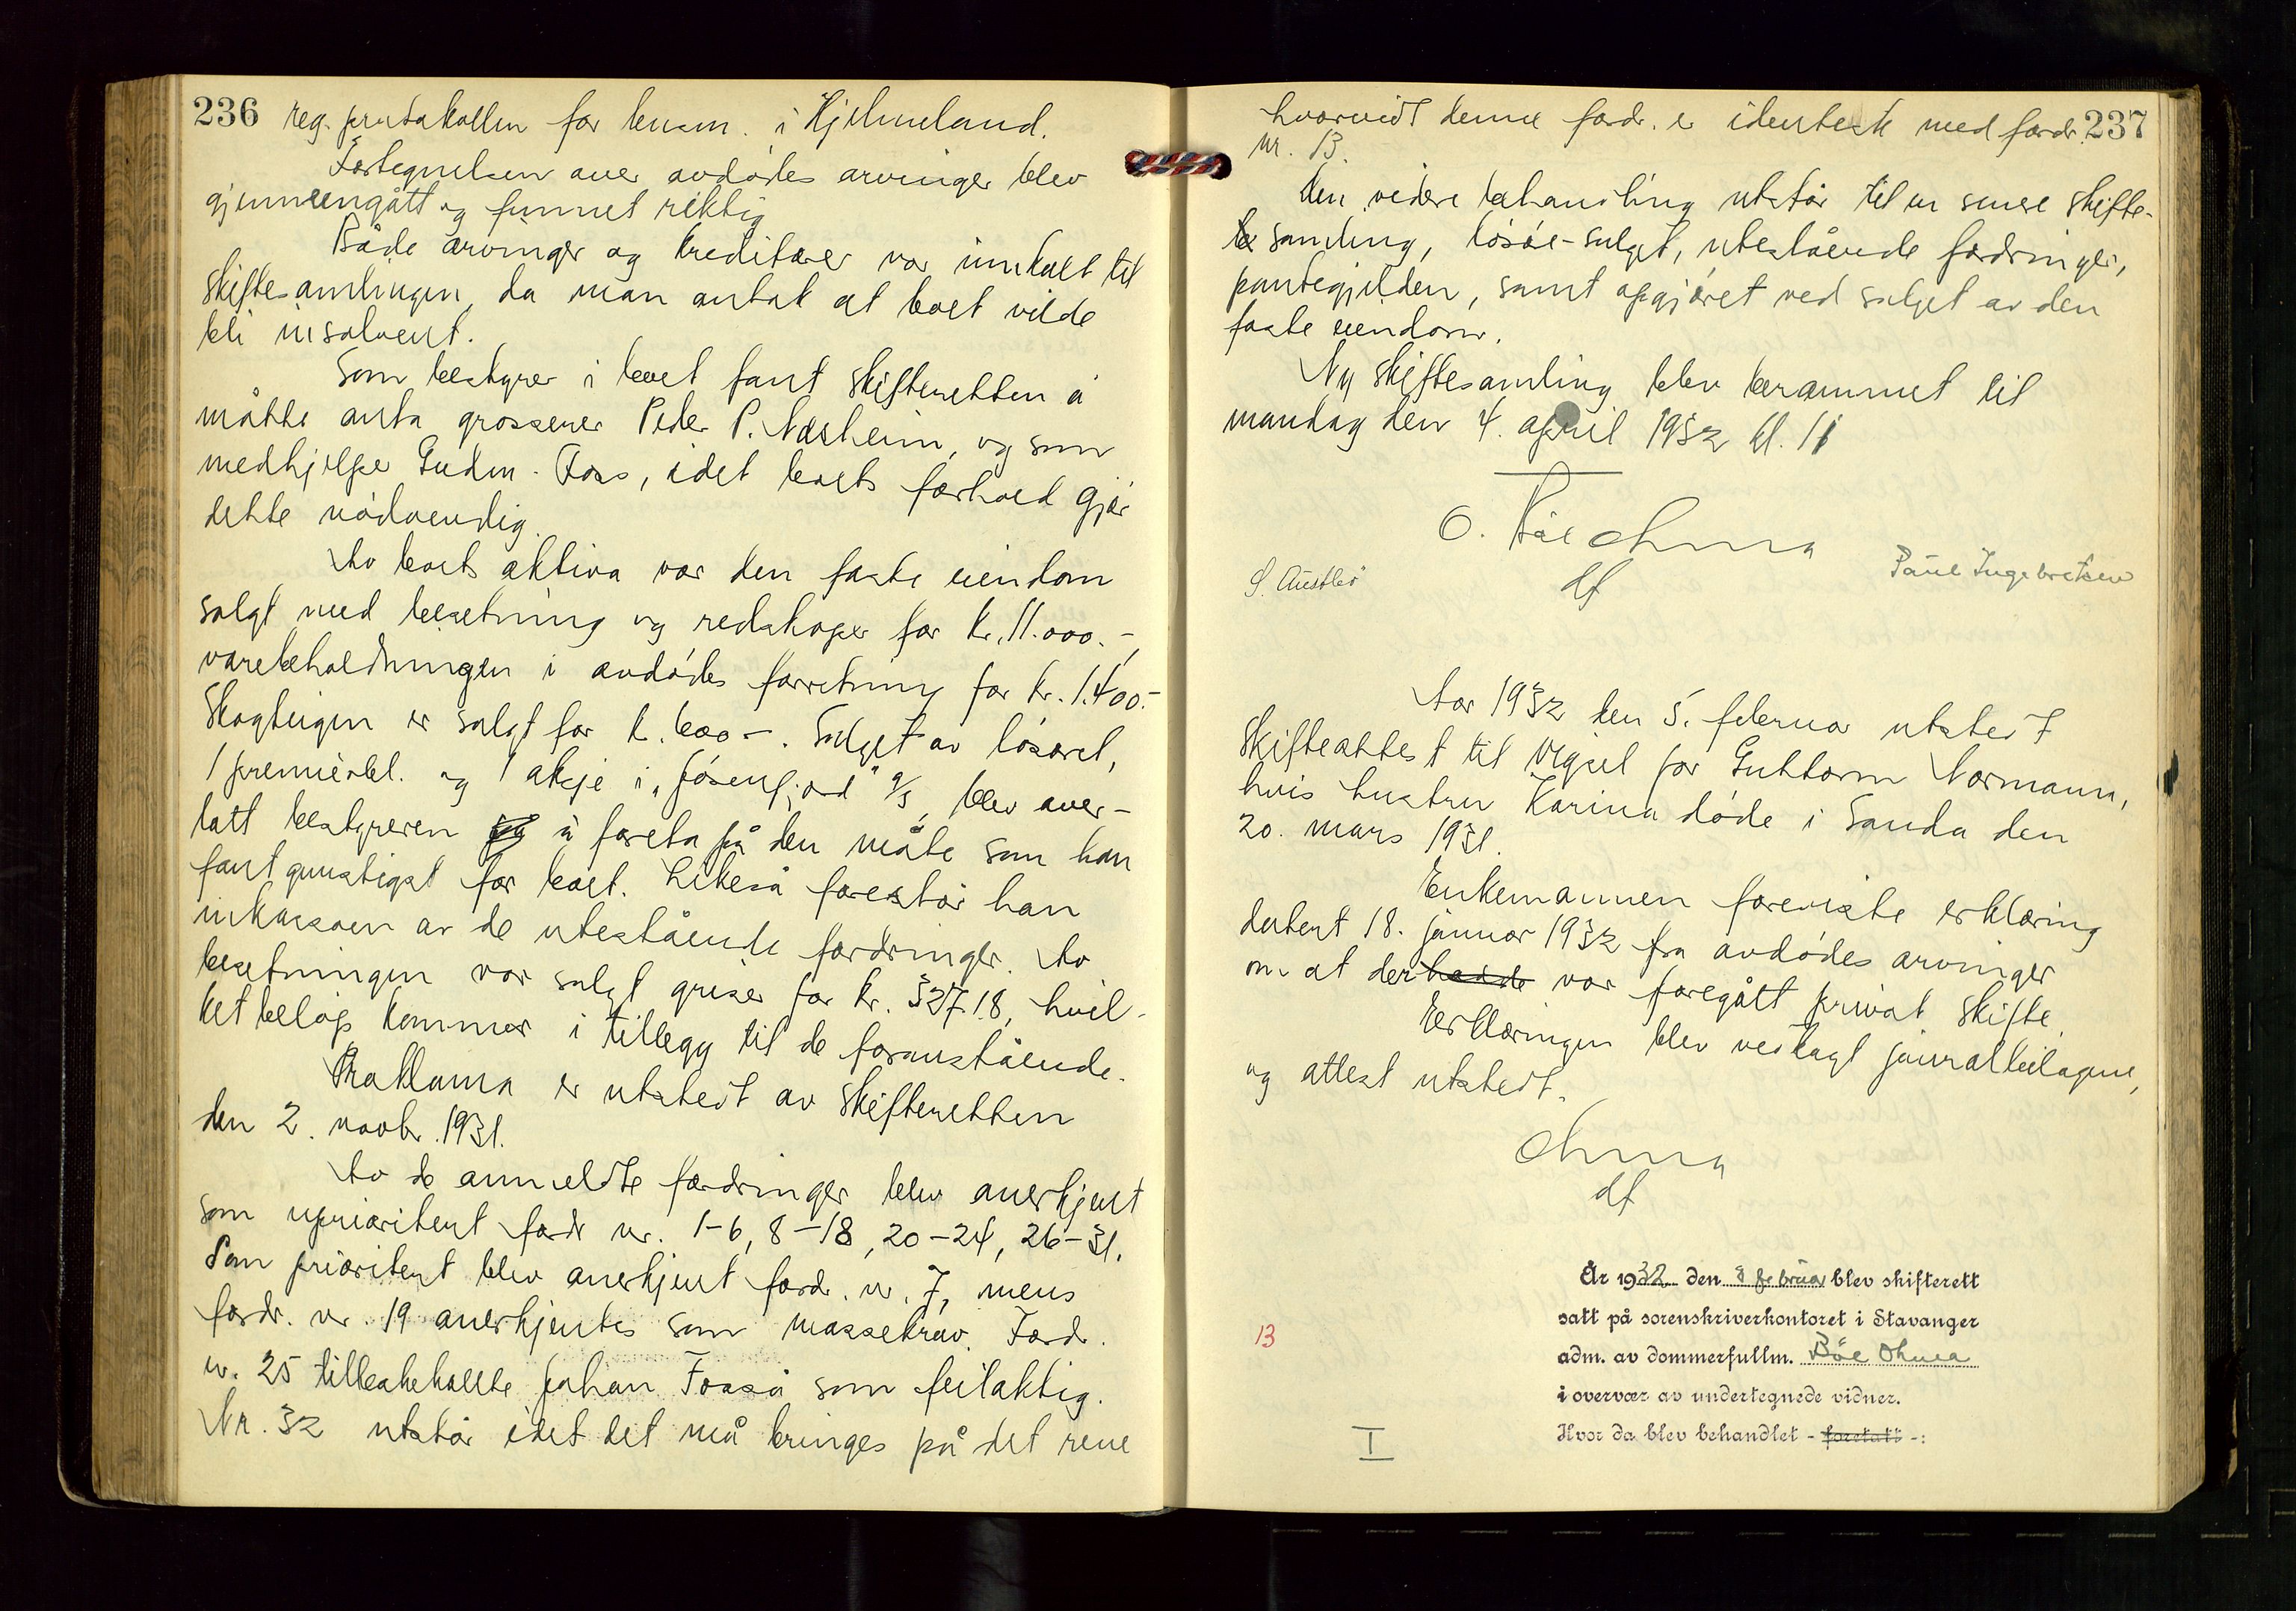 236 reg. protokollen for lensm. i Hjelmeland.
Fortegnelsen over avdødes arvinger blev
gjennemgått og funnet riktig
Både arvinger og kreditorer var innkalt til
skiftesamlingen, da man antok at boet vilde
bli insolvent.
Som bestyrer i boet fant skifteretten å
måtte anta grosserer Peder P. Næsheim, og som
medhjelper Gudm. Foss, idet boets forhold gjør
dette nødvendig.
Av boets aktiva var den faste eiendom
solgt med besetning og redskaper for kr. 11.000.-,
varebeholdningen i avdødes forretning for kr. 1.400.-
Skogteigen er solgt for kr. 600-. Salget av løsøret,
1 premieobl. og 1 aksje i "Jøsenfjord" A/S, blev over-
latt bestyreren å foreta på den måte som han
fant gunstigst for boet. Likeså forestår han
inkassoen av de utestående fordringer. Av
besetningen var solgt griser for kr. 327.18, hvil-
ket beløp kommer i tillegg til de foranstående.
Proklama er utstedt av skifteretten
den 2. novbr. 1931.
Av de anmeldte fordringer blev anerkjent
som uprioritert fordr nr. 1-6, 8-18, 20-24, 26-31.
Som prioritert blev anerkjent fordr. nr. 7, mens
fordr. nr. 19 anerkjentes som massekrav. Fordr.
nr. 25 tilbakekallte Johan Fosså som feilaktig.
Nr. 32 utstår idet det må bringes på det rene
hvorvidt denne fordr. er identisk med fordr. 237
nr. 13.
Den videre behandling utstår til en senere skifte-
samling, løsøe-salget, utestående fordringer,
pantegjelden, samt opgjøret ved salget av den
faste eiendom.
Ny skiftesamling blev berammet til
mandag den 4. april 1932 kl. 11
O. Bøe Ohma
df
S. Austbø
Paul Ingebretsen
Aar 1932 den 5. februar utstedt
skifteattest til vigsel for Guttorm Normann,
hvis hustru Karina døde i Sauda den
20. mars 1931.
Enkemannen foreviste erklæring
datert 18. januar 1932 fra avdødes arvinger
om at der hadde var foregått privat skifte.
Erklæringen blev vedlagt journalbilagene,
og attest utstedt.
Ohma
df
År 1932 den 8 februar blev skifterett
satt på sorenskriverkontoret i Stavanger
13
adm. av dommerfullm. Bøe Ohma
i overvær av undertegnede vidner.
I
Hvor da blev behandlet - foretatt -: